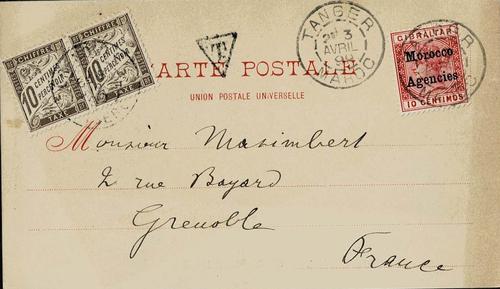 CHIFFRE
10
CENTIMES
À PERCEVOIR
TAXE
CHIFFRE
10
CENTIMES
TAXE
T
TANGER
3
AVRIL
MAROC
GIBRALTAR
Morocco
Agencies
10 CENTIMOS
CARTE POSTALE
UNION POSTALE UNIVERSELLE
Monsieur Masimbert
2 rue Bayard
Grenoble
France